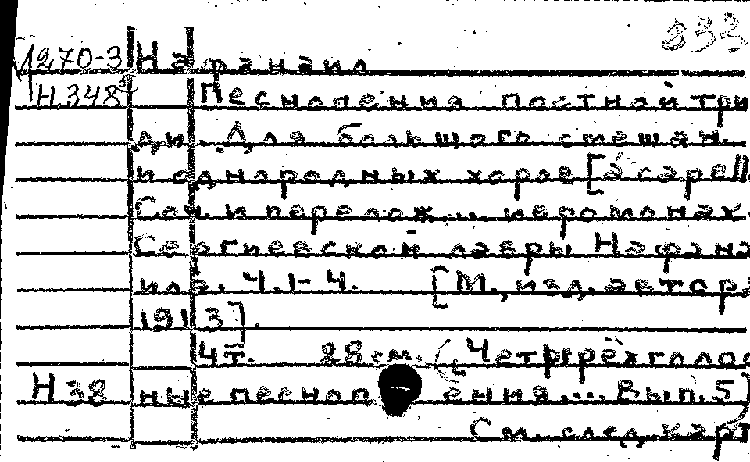 333
1270-3 Нафанаил
Н348 Песнопения постной три
ди. Для большого смешан.
и однородных хоров [a capell
Соч. и перелож... иеромонах
Сергиевской лавры Нафана
ила. Ч.1-4. [М., изд. автора
1913].
4т. 28 см. (Четырёхголос
Н38 ные песнопения.... Вып.5)
См. след. карт